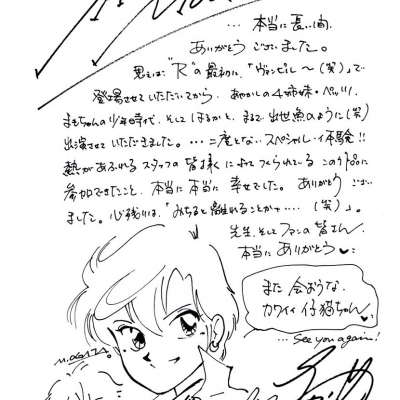 … 本当に長い間、
ありがとう ございました。
思えば "R" の最初に、「ヴァンピル〜(笑)」で
登場させていただいてから あやかしの4姉妹・ペッツ、
まもちゃんの少年時代、そして はるかと、まるで 出世魚のように(笑)
出演させていただきました。… 二度とない スペシャル・イ本馬発!!
熱があふれる スタッフの皆様 によって つくられている この作品に
参加できたこと、本当に 本当に 幸せでした。ありがとう ござい
ました。心残りは、「みちると 離れることかナ …… (笑)」。
先生、そして ファンの 皆さん、
本当に ありがとう♥
また 会おうな、
カワイイ 仔猫ちゃん♥
… see you again!
M.OGATA.